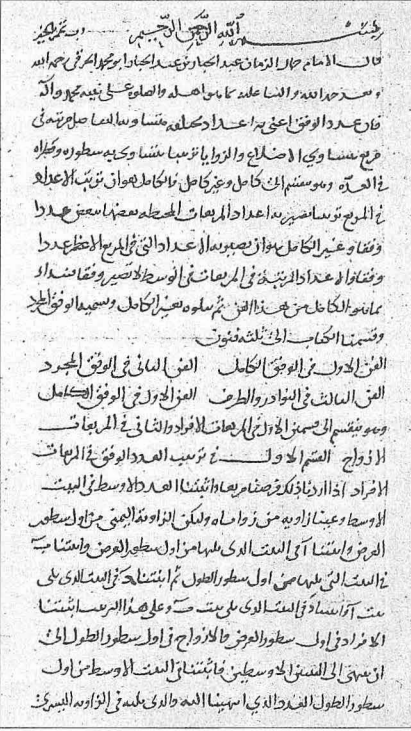 بسم الله الرحمن الرحيم وبه
قال الامام جمال الزمان عبد الجبار بن عبد الجبار ابو محمد الخرقي رحمه الله
وبعد حمد الله والثنا عليه بما هو اهله والصلوه على نبيه محمد واله
فان عدد الوفق اعنى به اعداد مختلفه متساويه التفاضل مرتبه فى
مربع متساوى الاضلاع والزوايا ترتيبا يتساوى به سطوره وقطراه
فى العده وهو ينقسم الى كامل وغير كامل فالكامل هو ان ترتب الاعداد
فى المربع ترتيبا تصير به اعداد المربعات المحيطه بعضها ببعض عددا
وفقا وغير الكامل هو ان يصير به الاعداد التى فى المربع الاعظم عددا
وفقا والاعداد المرتبة فى المربعات فى الوسط لا تصير وفقا فنبداء
بما هو الكامل من هذا الفن ثم نتلوه بغير الكامل ونسميه الوفق المجرد
وقسمنا الكتاب الى ثلثه فنون
الفن الاول فى الوفق الكامل الفن الثانى فى الوفق المجرد
الفن الثالث فى النوادر والطرف الفن الاول فى الوفق الكامل
وهو ينقسم الى قسمين الاول فى المربعات الافراد والثانى فى المربعات
الازواج القسم الاول فى ترتيب العدد الوفق فى المربعات
الافراد اذا اردنا ذلك فرضنا مربعا واثبتنا العدد الاوسط فى البيت
الاوسط وعينا زاويه من زواياه ولتكن الزاويه اليمنى من اول سطور
العرض واثبتنا آ فى البيت الذى يليها من اول سطور العرض واثبتنا ب
فى البيت التى يليها من اول سطور الطول ثم اثبتنا ج فى البيت الذى يلى
بيت آ و د فى البيت الذى يلى بيت ب وعلى هذا الترتيب اثبتنا
الافراد فى اول سطور العرض والازواج فى اول سطور الطول الى
ان ينتهى الى البيتين الاوسطين فاثبتنا فى البيت الاوسط من اول
سطور الطول الفرد الذى انتهينا اليه والذى يليه فى الزاويه اليسرى